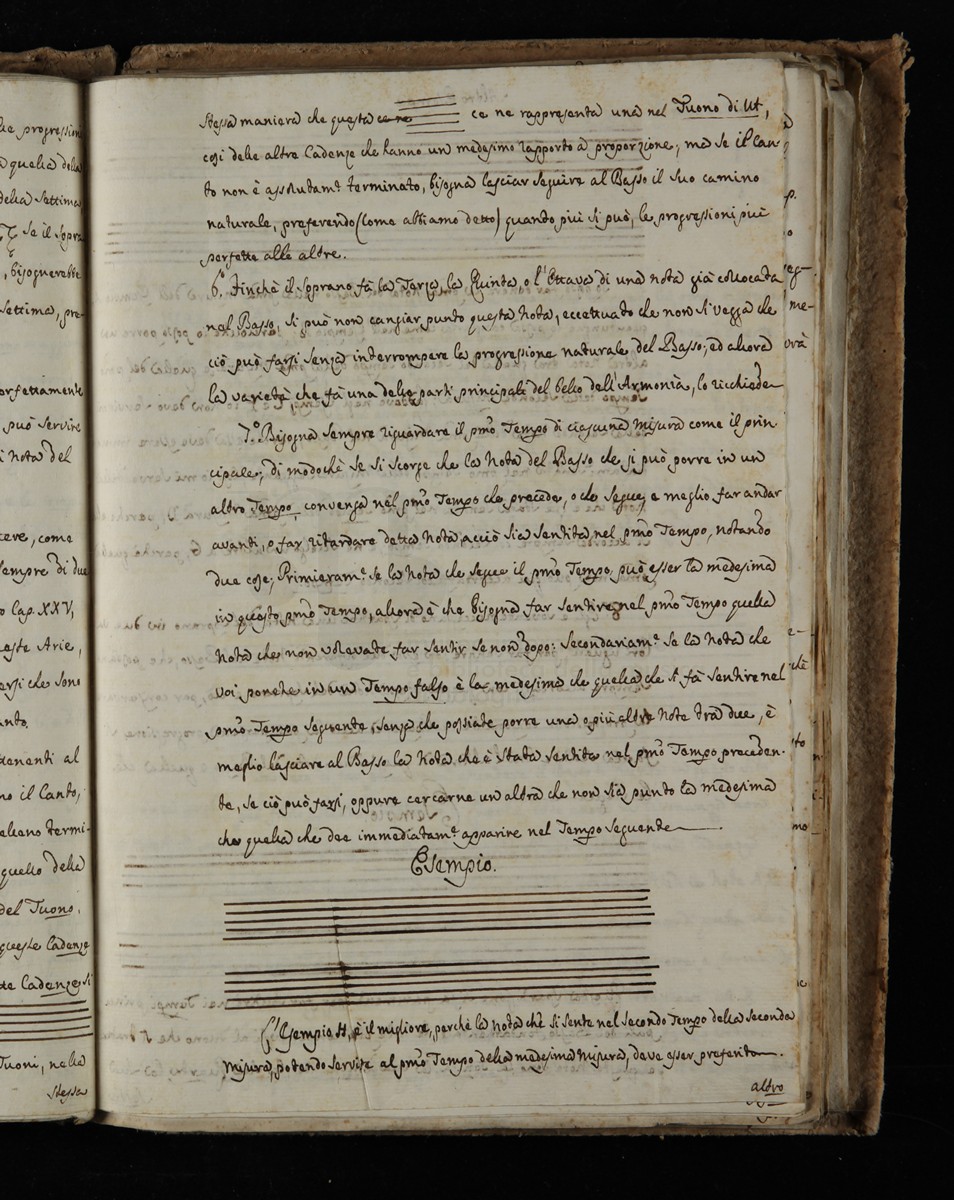 lle progression
quella della
della Settima
Se il Sopra
, bisognerebbe
Settima, pre
erfettamente
può servire
Nota del
cere, come
empre di due
Cap. XXV,
este Arie,
ersi che sono
anto,
tenenti al
no il Canto,
eliano termi-
quello della
del Tuono,
queste Cadenze
te Cadenze, si
Tuoni, nella
Stessa
Stessa maniera che questa ce ne ce ne rappresenta una nel Tuono di Ut,
così delle altre Cadenze che hanno un medesimo rapporto a proporzione; ma se il Can-
to non è assolutamte terminato, bisogna lasciar seguire al Basso il suo camino
naturale, preferendo (come abbiamo detto) quando più si può, le progressioni più
perfette alle altre.
6. Finchè il Soprano fà la Terza, la Quinta, o l'Ottava di una nota già collocata
nel Basso, si può non cangiar punto questa Nota, eccettuato che non si vegga che
ciò può farsi senza interrompere la progressione naturale del Basso; ed allora
la varietà, che fà una delle parti principali del bello dell'Armonia, lo richiede
7.º Bisogna sempre riguardare il pmo Tempo di ciascuna misura come il prin-
cipale, di modochè se si scorge che la Nota del Basso che si può porre in un
altro Tempo, convenga nel pmo Tempo che precede, o che segue, e meglio far andar
avanti, o far ritardare detta Nota, acciò sia sentita nel pmo Tempo, notando
due cose; Primieramte se la Nota che segue il pmo Tempo, può esser la medesima
in questo pmo Tempo, allora è che bisogna far sentire nel pmo Tempo quella
Nota che non volevate far sentir se non dopo: Secondariamte se la Nota che
voi ponete in un Tempo falso è la medesima che quella che si fà sentire nel
pmo Tempo seguente, senza che possiate porre una o più altre Note trà due, è
meglio lasciare al Basso la Nota che è stata sentita nel pmo Tempo preceden-
te, se ciò può farsi, oppure cercarne un'altra che non sia punto la medesima
che quella che dee immediatamte apparire nel Tempo seguente
Esempio.
L'Esempio H, è il migliore, perchè la nota che si sente nel secondo Tempo della seconda
Misura, potendo servire al pmo Tempo della medesima Misura, deve esser preferito
altro